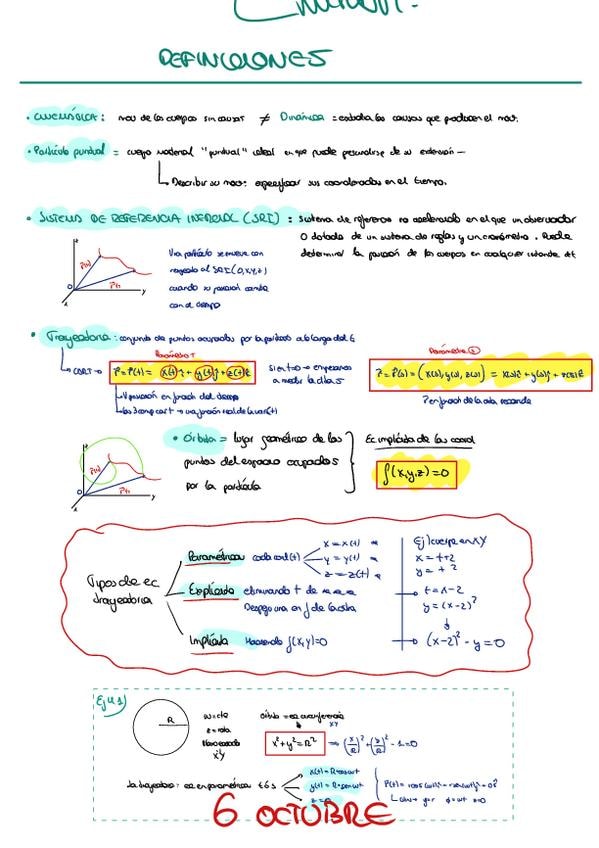 DEFINICIONES
• CINEMÁTICA: mov de los cuerpos sin causas ≠ Dinámica = estudia las causas que producen el mov.
• Partícula puntual = cuerpo material "puntual" ideal en que puede prescindirse de su extensión —
Describir su mov: especificar sus coordenadas en el tiempo.
• SISTEMA DE REFERENCIA INERCIAL (SRI): Sistema de referencia no acelerado en el que un observador
O dotado de un sistema de reglas y un cronómetro. Puede
determinar la posición de los cuerpos en cualquier instante
Una partícula se mueve con
respecto al SRI (O,x,y,z)
cuando su posición cambia
con el tiempo
• Trayectoria: conjunto de puntos ocupados por la partícula a lo largar del t
Parámetro t
r = r(t) = x(t)i + y(t)j + z(t)k
si en t=0 → empezamos
a medir la dias
Parámetro s
r = r(s) = (x(s), y(s), z(s)) = x(s)i + y(s)j + z(s)k
posición en función del tiempo
• Órbita = lugar geométrico de los
puntos del espacio ocupados
por la partícula
Ec implícita de las coord
f(x,y,z)=0
Tipos de ec
trayectoria
Paramétrica: cada coord(t)
x = x(t)
y = y(t)
z = z(t)
Explícita eliminando t de
Despejo una en f de la otra
Implícita Haciendo f(x,y)=0
Ej) cuerpo en XY
x = t+2
y = t²
t = x-2
y = (x-2)²
(x-2)² - y = 0
Ej 4.1)
R
ω=cte
XY
Órbita = ec circunferencia
XY
x² + y² = R²
⇒ (x/R)² + (y/R)² - 1 = 0
La trayectoria: ec en paramétricas t ó s
x(t) = R cos ωt
y(t) = R sen ωt
z = 0
6 OCTUBRE